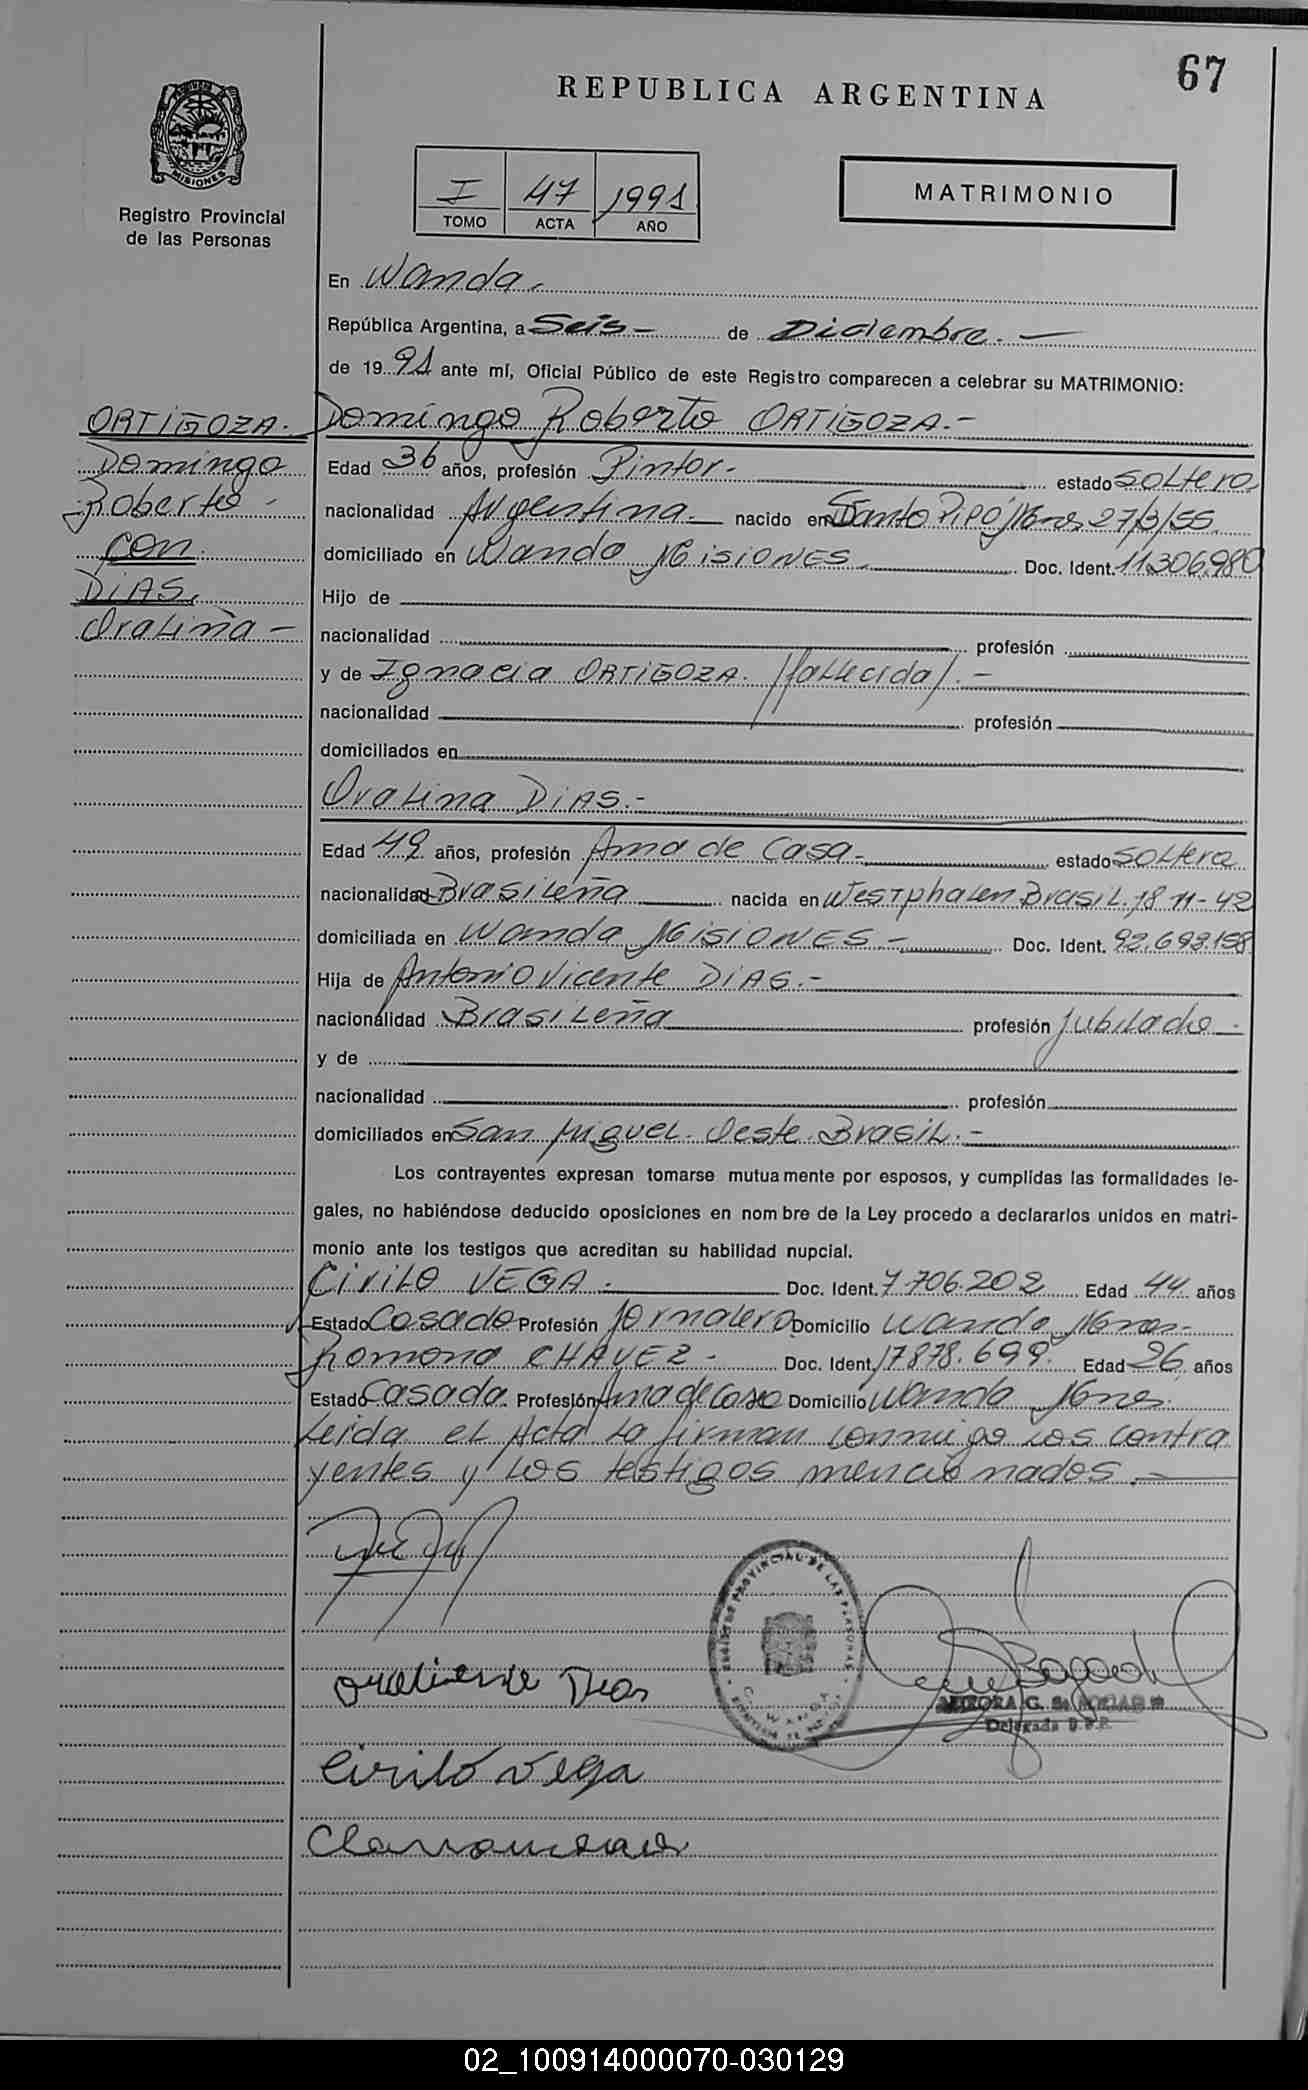 67
REPUBLICA ARGENTINA
MISIONES
Registro Provincial
de las Personas
I 47 1991
TOMO ACTA AÑO
MATRIMONIO
En Wanda.
República Argentina, a Seis- de Diciembre.-
de 1991 ante mí, Oficial Público de este Registro comparecen a celebrar su MATRIMONIO:
ORTIGOZA.
Domingo
Roberto -
con
DIAS.
Oralina -
Domingo Roberto ORTIGOZA.-
Edad 36 años, profesión Pintor- estado soltero
nacionalidad Argentina nacido en Santo Pipó, Mnes 27/3/55.
domiciliado en Wanda MISIONES. Doc. Ident. 11.306.980
Hijo de
nacionalidad profesión
y de Ignacia ORTIGOZA. /fallecida/.-
nacionalidad profesión
domiciliados en
Oralina DIAS.-
Edad 49 años, profesión Ama de Casa- estado soltera
nacionalidad Brasileña nacida en Westphalen Brasil. 18-11-42
domiciliada en Wanda MISIONES- Doc. Ident. 92.693.158
Hija de Antonio Vicente DIAS.-
nacionalidad Brasileña profesión jubilado-
y de
nacionalidad profesión
domiciliados en San Miguel. Oeste. Brasil.-
Los contrayentes expresan tomarse mutuamente por esposos, y cumplidas las formalidades le-
gales, no habiéndose deducido oposiciones en nombre de la Ley procedo a declararlos unidos en matri-
monio ante los testigos que acreditan su habilidad nupcial.
Cirilo VEGA. Doc. Ident. 7.706.202 Edad 44 años
Estado Casado Profesión Jornalero Domicilio Wanda Mnes-
Ramona CHAVEZ- Doc. Ident. 17878.699. Edad 26 años
Estado Casada. Profesión Ama de Casa Domicilio Wanda Mnes.
Leida el Acta la firman conmigo los contra
yentes y los testigos mencionados.-
REGISTRO PROVINCIAL DE LAS PERSONAS
WANDA
Dias
AURORA G. de
Delegada R.P.P.
Cirilo Vega
02_100914000070-030129